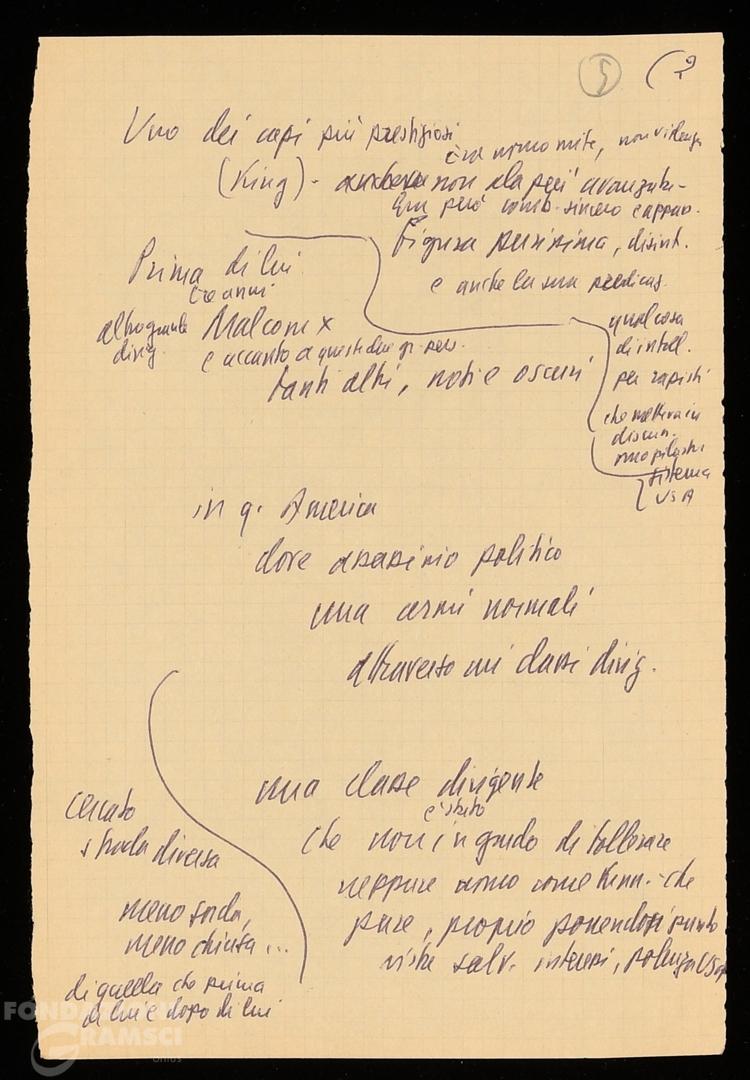 5 (?
Uno dei capi più prestigiosi
era uomo mite, non violenza
(King) - anche se non ala più avanzata -
Era però comb. sincero e appas.
Figura purissima, disint.
e anche la sua predicaz.
qualcosa
di intoll.
per razzisti
che metteva in
discus.
uno pilastri
sistema
USA
Prima di lui
tre anni
altro grande
dirig.
Malcom X
e accanto a questi due gr. pers.
tanti altri, noti e oscuri
in q. America
dove assassinio politico
una armi normali
attraverso cui classi dirig.
una classe dirigente
è stata
che non in grado di tollerare
neppure uomo come Kenn. che
pure, proprio ponendosi punto
vista salv. interessi, potenza USA
cercato
strada diversa
meno sorda,
meno chiusa ...
di quella che prima
di lui e dopo di lui
FONDAZIONE
GRAMSCI
onlus